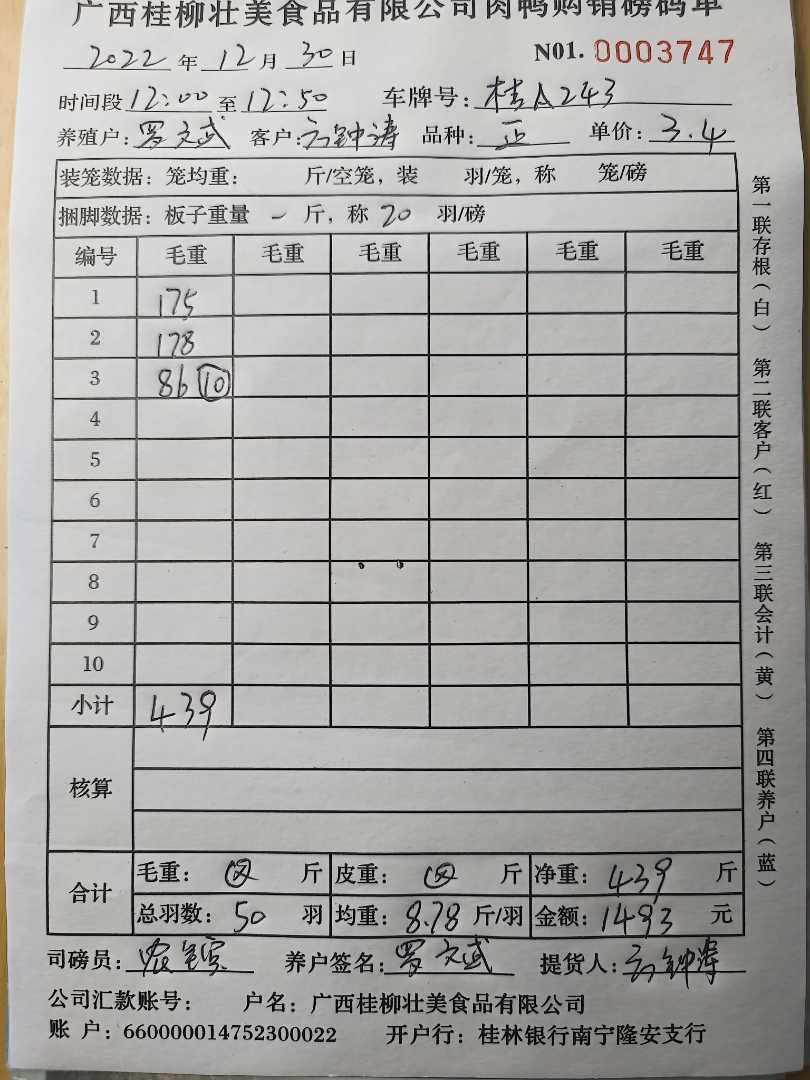 广西桂柳壮美食品有限公司肉鸭购销磅码单
2022年12月30日 N01.0003747
时间段12:00至12:50 车牌号:桂A243
养殖户:罗文武 客户:方钟涛 品种:正 单价:3.4
装笼数据:笼均重: 斤/空笼,装 羽/笼,称 笼/磅
捆脚数据:板子重量 一 斤,称20 羽/磅
编号 毛重 毛重 毛重 毛重 毛重 毛重
1 175
2 178
3 86 10
4
5
6
7
8
9
10
小计 439
核算
合计 毛重: 斤 皮重: 斤 净重:439斤
总羽数:50羽 均重:8.78斤/羽 金额:1493元
司磅员: 养户签名:罗文武 提货人:方钟涛
公司汇款账号: 户名:广西桂柳壮美食品有限公司
账 户:660000014752300022 开户行:桂林银行南宁隆安支行
第一联存根(白) 第二联客户(红) 第三联会计(黄) 第四联养户(蓝)